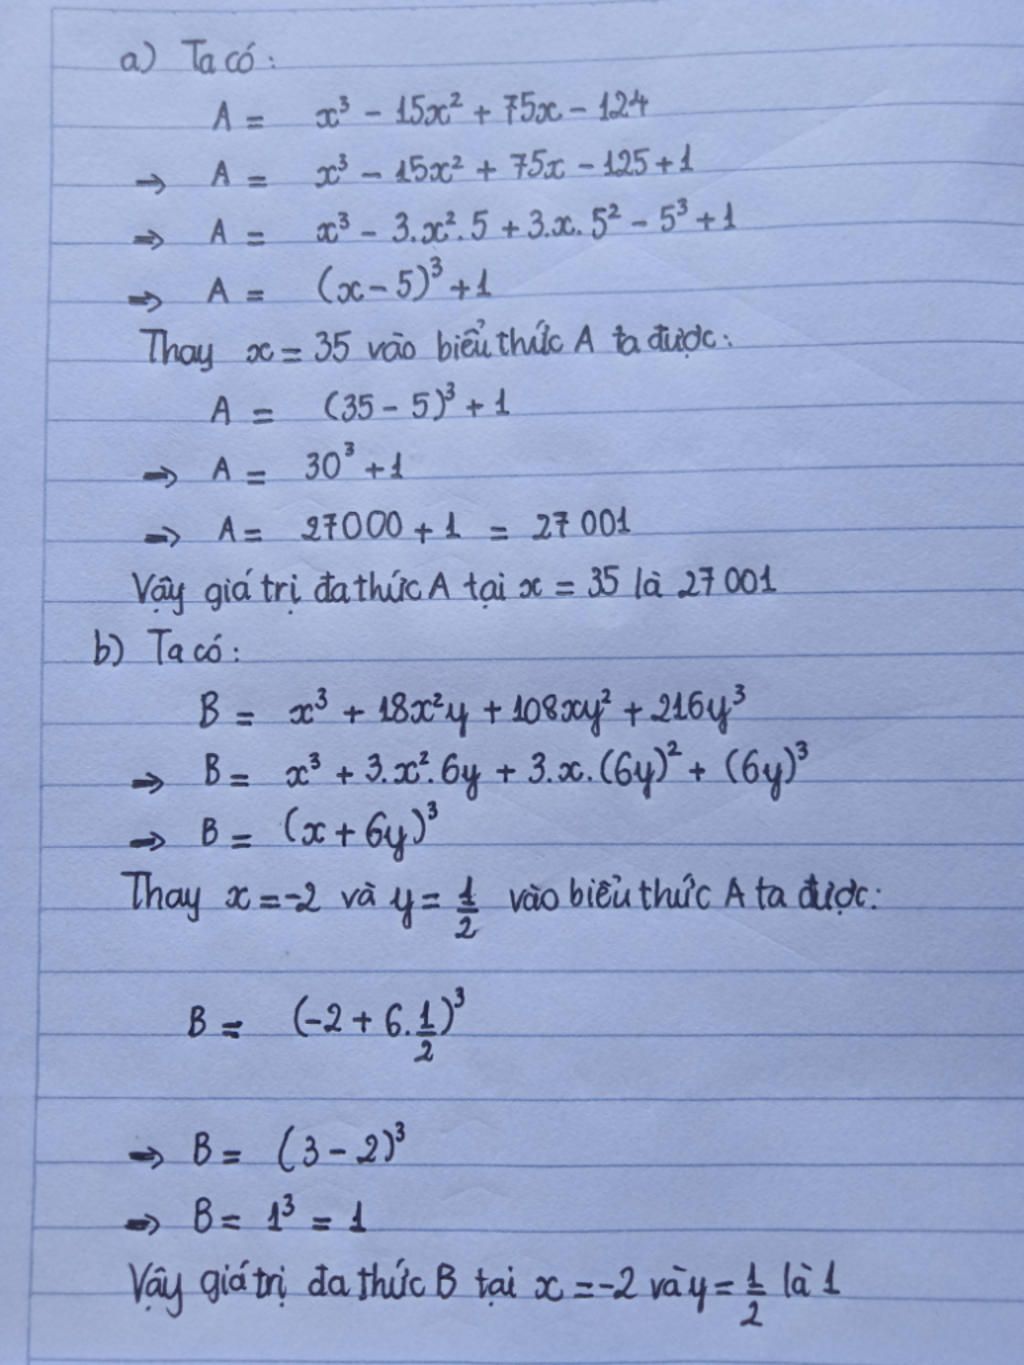 a) Ta có :
A = x³ - 15x² + 75x - 124
⇒ A = x³ - 15x² + 75x - 125 + 1
⇒ A = x³ - 3.x².5 + 3.x.5² - 5³ + 1
⇒ A = (x - 5)³ + 1
Thay x = 35 vào biểu thức A ta được:
A = (35 - 5)³ + 1
⇒ A = 30³ + 1
⇒ A = 27000 + 1 = 27 001
Vậy giá trị đa thức A tại x = 35 là 27 001
b) Ta có :
B = x³ + 18x²y + 108xy² + 216y³
⇒ B = x³ + 3.x².6y + 3.x.(6y)² + (6y)³
⇒ B = (x + 6y)³
Thay x = -2 và y = 1/2 vào biểu thức A ta được:
B = (-2 + 6.1/2)³
⇒ B = (3 - 2)³
⇒ B = 1³ = 1
Vậy giá trị đa thức B tại x = -2 và y = 1/2 là 1